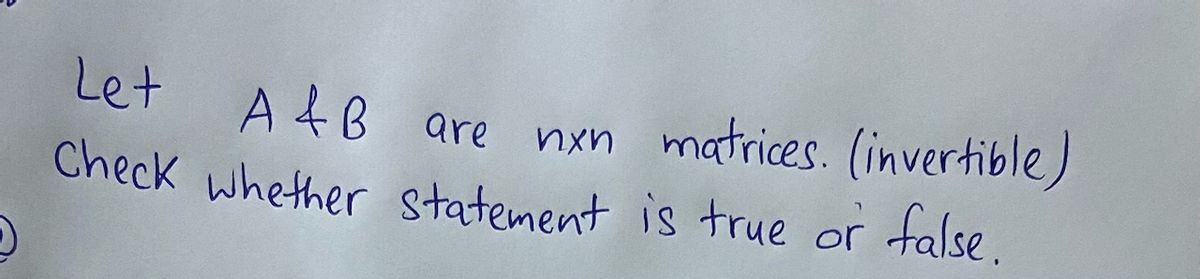 Let A & B are nxn matrices. (invertible)
Check whether statement is true or false.